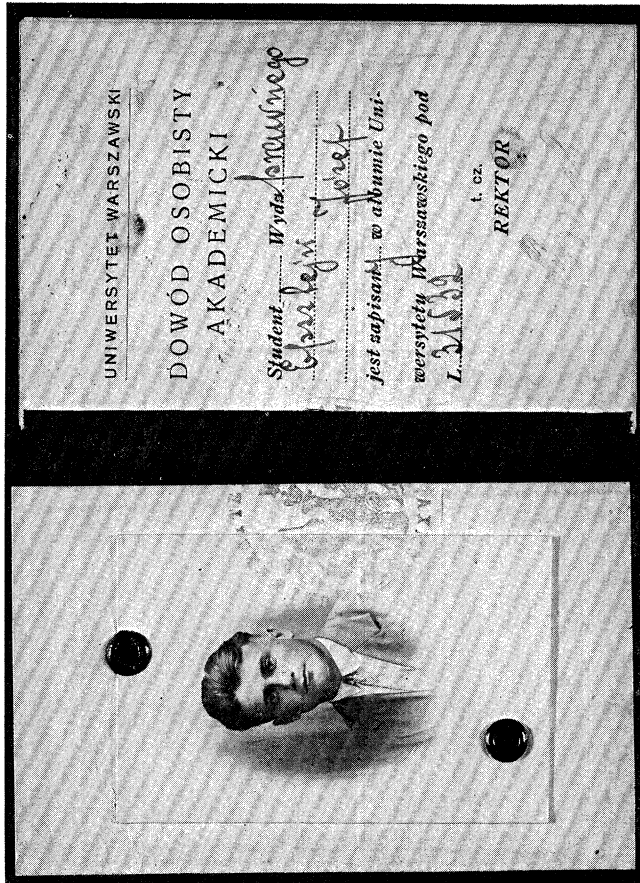 UNIWERSYTET WARSZAWSKI
DOWÓD OSOBISTY
AKADEMICKI
Student Wydz. prawnego
Józef
jest zapisany w albumie Uni-
wersytetu Warszawskiego pod
L.
t. cz.
REKTOR